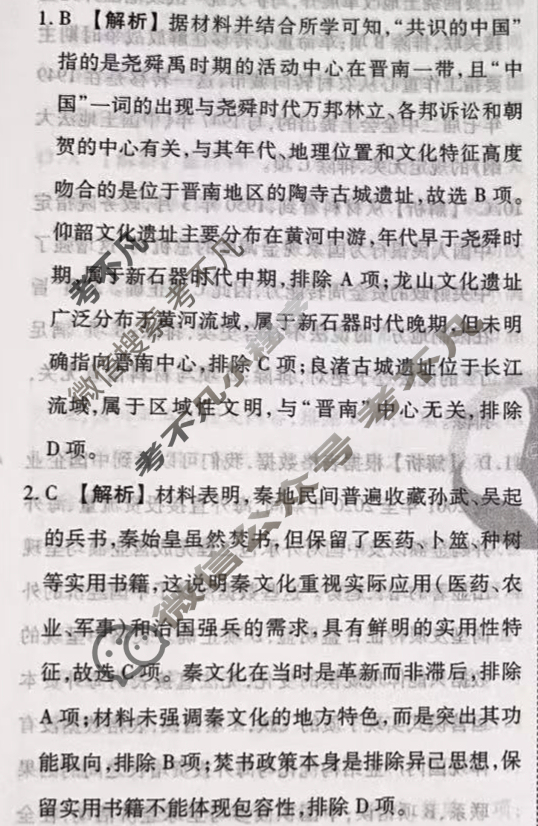 1. B 【解析】据材料并结合所学可知，“共识的中国”
指的是尧舜禹时期的活动中心在晋南一带，且“中
国”一词的出现与尧舜时代万邦林立、各邦诉讼和朝
贺的中心有关，与其年代、地理位置和文化特征高度
吻合的是位于晋南地区的陶寺古城遗址，故选 B 项。
仰韶文化遗址主要分布在黄河中游，年代早于尧舜时
期，属于新石器时代中期，排除 A 项；龙山文化遗址
广泛分布于黄河流域，属于新石器时代晚期，但未明
确指向晋南中心，排除 C 项；良渚古城遗址位于长江
流域，属于区域性文明，与“晋南”中心无关，排除
D 项。
2. C 【解析】材料表明，秦地民间普遍收藏孙武、吴起
的兵书，秦始皇虽然焚书，但保留了医药、卜筮、种树
等实用书籍，这说明秦文化重视实际应用（医药、农
业、军事）和治国强兵的需求，具有鲜明的实用性特
征，故选 C 项。秦文化在当时是革新而非滞后，排除
A 项；材料未强调秦文化的地方特色，而是突出其功
能取向，排除 B 项；焚书政策本身是排除异己思想，保
留实用书籍不能体现包容性，排除 D 项。
考不凡
微信搜索 考不凡
考不凡小程序
微信公众号 考不凡